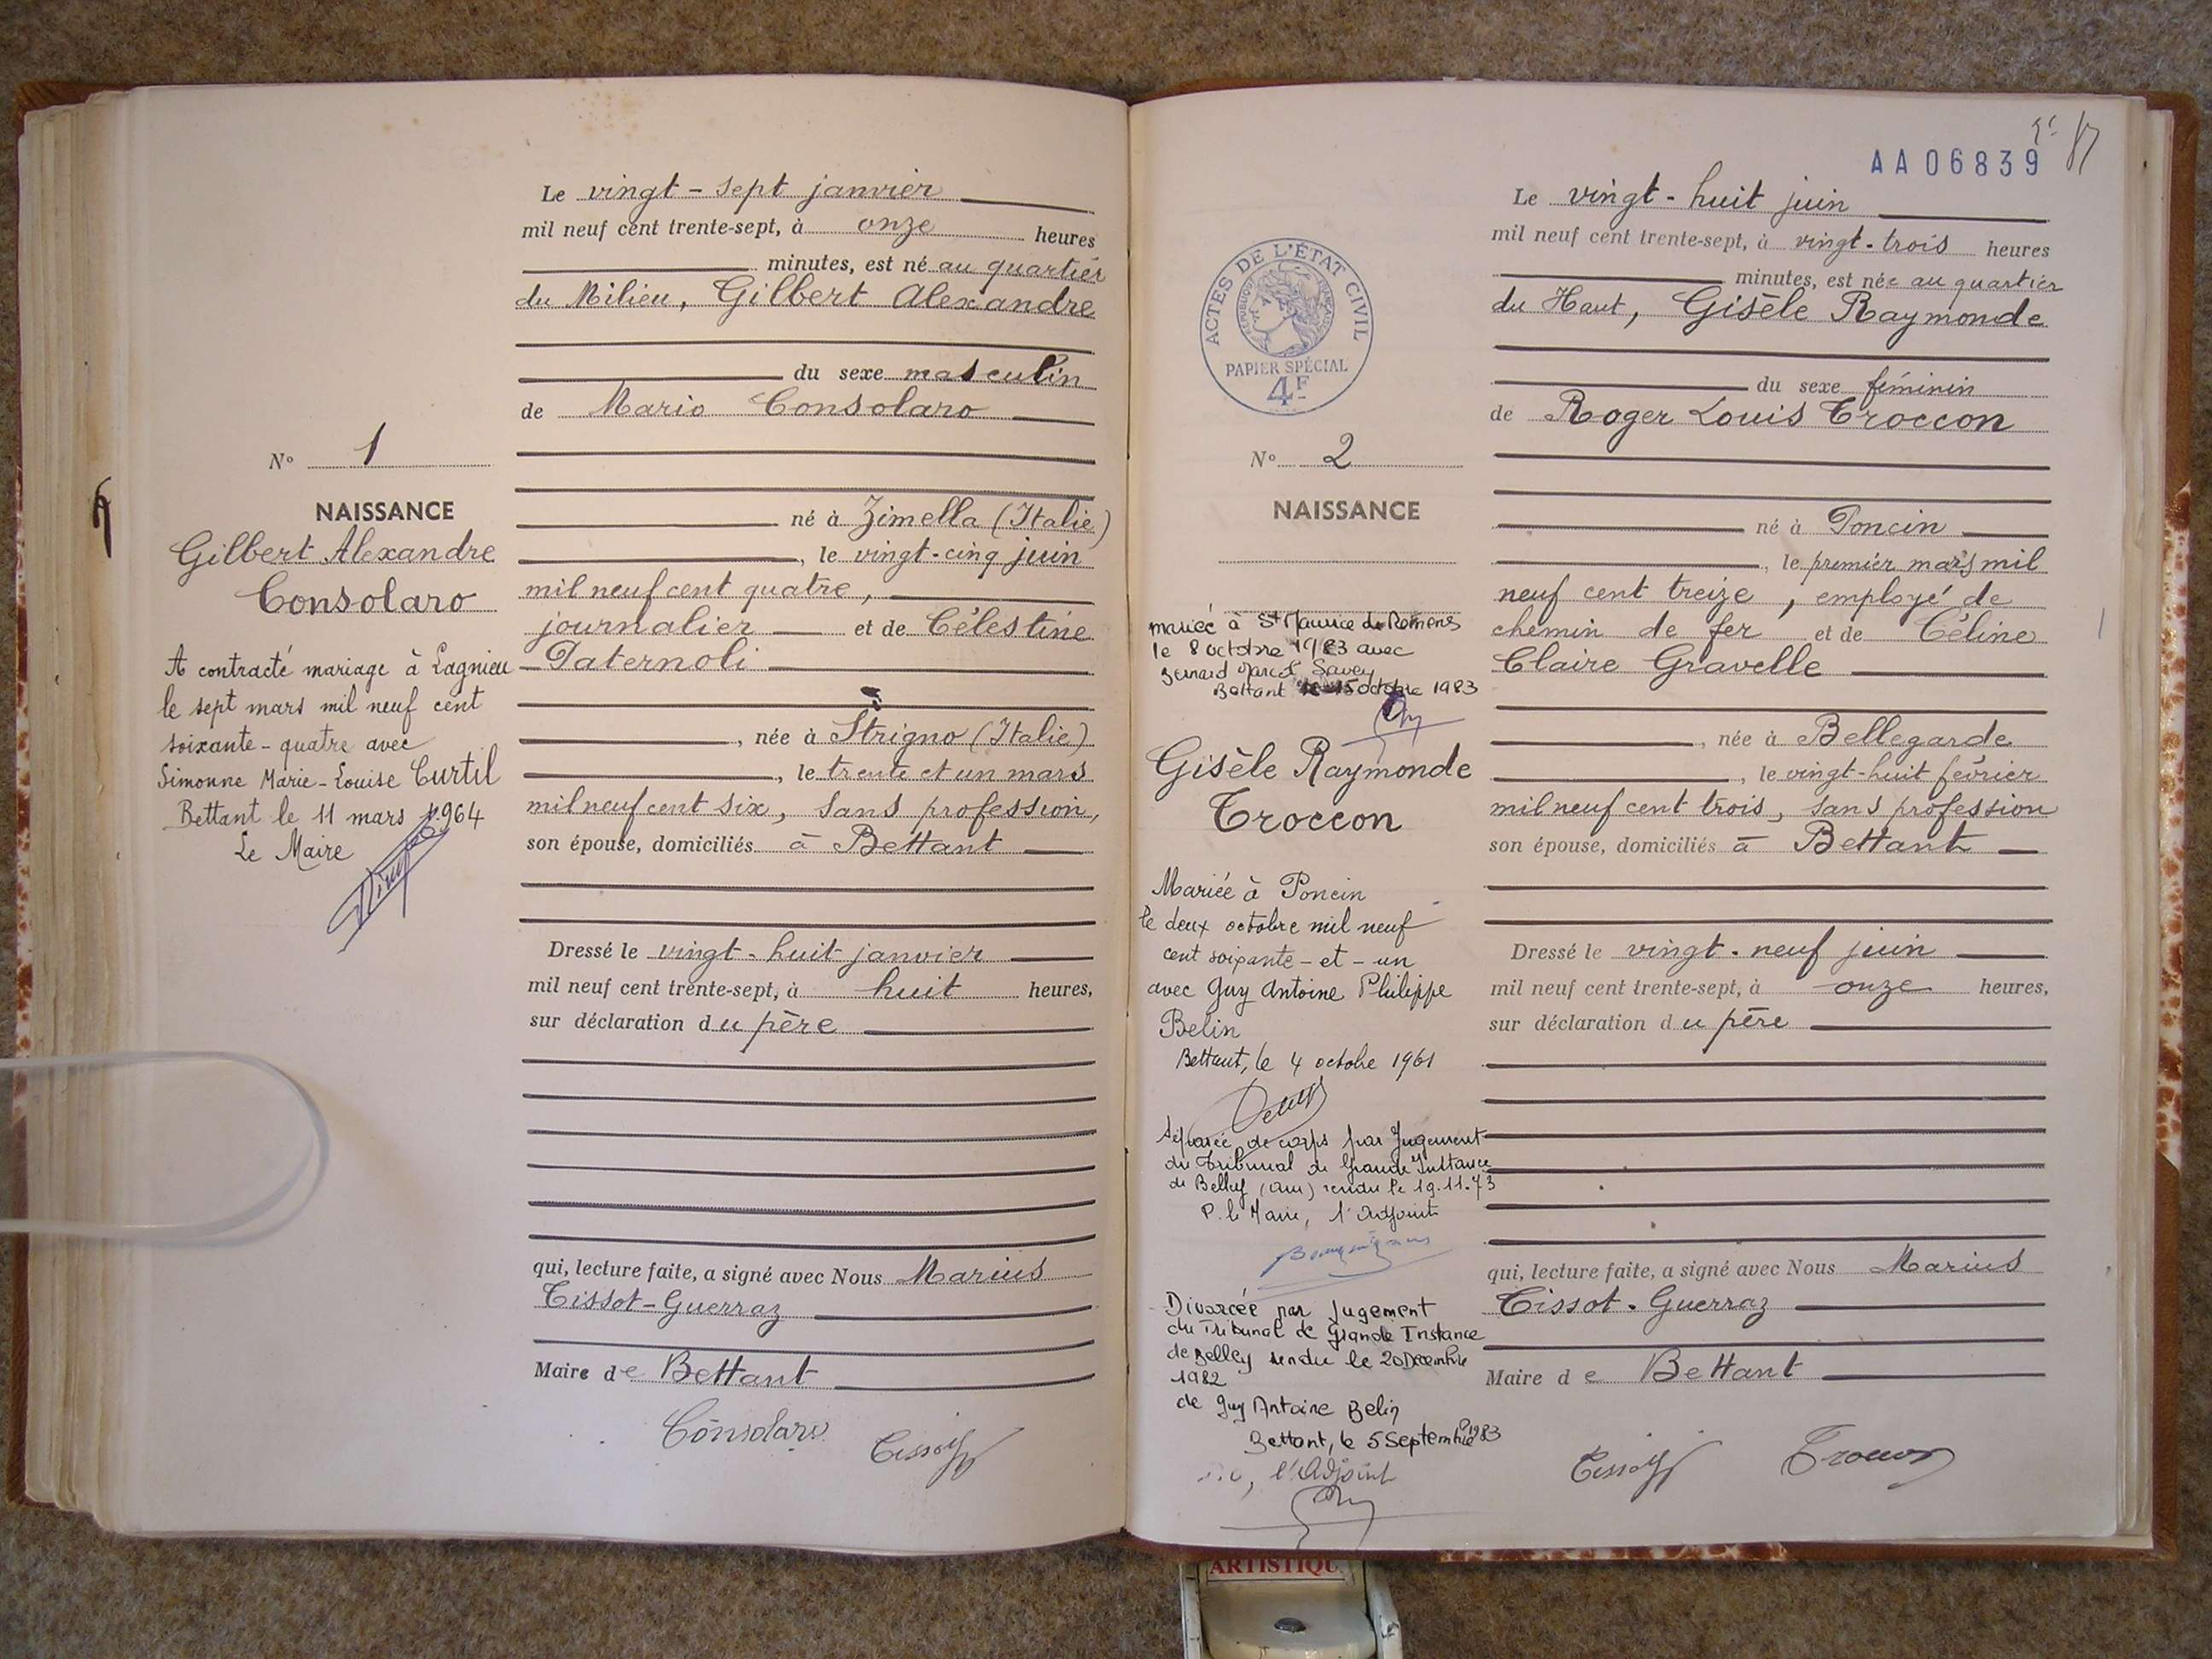 Le vingt-sept janvier
mil neuf cent trente-sept, à onze heures
minutes, est né au quartier
du Milieu, Gilbert Alexandre
du sexe masculin
de Mario Consolaro
né à Zimella (Italie)
, le vingt-cinq juin
mil neuf cent quatre,
journalier et de Célestine
Paternoli
, née à Strigno (Italie)
, le trente et un mars
mil neuf cent six, sans profession,
son épouse, domiciliés à Bettant
Dressé le vingt-huit janvier
mil neuf cent trente-sept, à huit heures,
sur déclaration du père
qui, lecture faite, a signé avec Nous Marius
Tissot-Guerraz
Maire de Bettant
Consolaro
Tissot
N° 1
NAISSANCE
Gilbert Alexandre
Consolaro
A contracté mariage à Lagnieu
le sept mars mil neuf cent
soixante-quatre avec
Simonne Marie-Louise Curtil
Bettant le 11 mars 1964
Le Maire
AA06839
87
ACTES DE L'ÉTAT CIVIL
RÉPUBLIQUE FRANÇAISE
PAPIER SPÉCIAL
4F
N° 2
NAISSANCE
mariée à St Maurice de Remens
le 8 octobre 1983 avec
Bernard Marcel Savey
Bettant le 15 octobre 1983
Gisèle Raymonde
Troccon
Mariée à Poncin
le deux octobre mil neuf
cent soixante-et-un
avec Guy Antoine Philippe
Belin
Bettant, le 4 octobre 1961
Séparée de corps par Jugement
du Tribunal de Grande Instance
de Belley (Ain) rendu le 19.11.73
P. le Maire, l'Adjoint
Divorcée par Jugement
du Tribunal de Grande Instance
de Belley rendu le 20 Décembre
1982
de Guy Antoine Belin
Bettant, le 5 Septembre 1983
l'Adjoint
Le vingt-huit juin
mil neuf cent trente-sept, à vingt-trois heures
minutes, est née au quartier
du Haut, Gisèle Raymonde
du sexe féminin
de Roger Louis Troccon
né à Poncin
, le premier mars mil
neuf cent treize, employé de
chemin de fer et de Céline
Claire Gravelle
, née à Bellegarde
, le vingt-huit février
mil neuf cent trois, sans profession
son épouse, domiciliés à Bettant
Dressé le vingt-neuf juin
mil neuf cent trente-sept, à onze heures,
sur déclaration du père
qui, lecture faite, a signé avec Nous Marius
Tissot-Guerraz
Maire de Bettant
Tissot
Troccon
ARTISTIQU